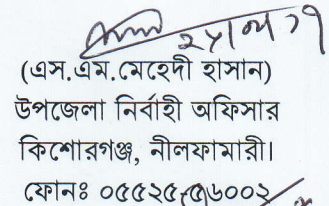 (এস.এম.মেহেদী হাসান)
উপজেলা নির্বাহী অফিসার
কিশোরগঞ্জ, নীলফামারী।
ফোনঃ ০৫৫২৫-৫৬০০২